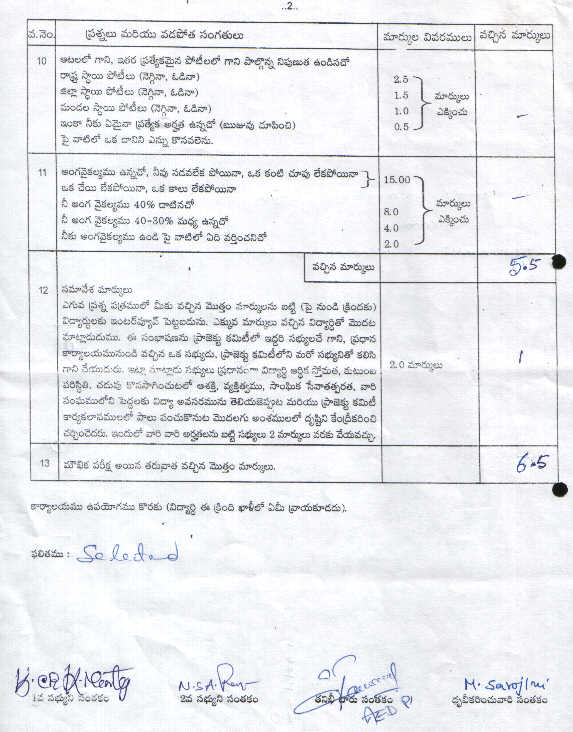 ..2..
వ.నెం. ప్రశ్నలు మరియు వడపోత సంగతులు మార్కుల వివరములు వచ్చిన మార్కులు
10 ఆటలలో గాని, ఇతర ప్రత్యేకమైన పోటీలలో గాని పాల్గొన్న నిపుణత ఉండినచో
రాష్ట్ర స్థాయి పోటీలు (నెగ్గినా, ఓడినా) 2.5
జిల్లా స్థాయి పోటీలు (నెగ్గినా, ఓడినా) 1.5 మార్కులు
మండల స్థాయి పోటీలు (నెగ్గినా, ఓడినా) 1.0 ఎక్కించు –
ఇంకా నీకు ఏమైనా ప్రత్యేక అర్హత ఉన్నచో (ఋజువు చూపించి) 0.5
పై వాటిలో ఒక దానిని ఎన్ను కొనవలెను.
11 అంగవైకల్యము ఉన్నచో, నీవు నడవలేక పోయినా, ఒక కంటి చూపు లేకపోయినా 15.00
ఒక చేయి లేకపోయినా, ఒక కాలు లేకపోయినా
నీ అంగ వైకల్యము 40% దాటినచో 8.0 మార్కులు –
నీ అంగ వైకల్యము 40-30% మధ్య ఉన్నచో 4.0 ఎక్కించు
నీకు అంగవైకల్యము ఉండి పై వాటిలో ఏది వర్తించనిచో 2.0
వచ్చిన మార్కులు 5.5
12 సమావేశ మార్కులు
ఎగువ ప్రశ్న పత్రములో మీకు వచ్చిన మొత్తం మార్కులను బట్టి (పై నుండి క్రిందకు)
విద్యార్థులకు ఇంటర్వ్యూన్ పెట్టబడును. ఎక్కువ మార్కులు వచ్చిన విద్యార్థితో మొదట
మాట్లాడుదుము. ఈ సంభాషణను ప్రాజెక్టు కమిటీలో ఇద్దరి సభ్యులచే గాని, ప్రధాన
కార్యాలయమునుండి వచ్చిన ఒక సభ్యుడు, ప్రాజెక్టు కమిటీలోని మరో సభ్యునితో కలిసి
గాని చేయుదురు. ఇట్లా మాట్లాడు సభ్యులు ప్రధానంగా విద్యార్థి ఆర్థిక స్తోమత, కుటుంబ 2.0 మార్కులు 1
పరిస్థితి, చదువు కొనసాగించుటలో ఆశక్తి, వ్యక్తిత్వము, సాంఘిక సేవాతత్పరత, వారి
సంఘములోని పెద్దలకు విద్యా అవసరమును తెలియజెప్పుట మరియు ప్రాజెక్టు కమిటీ
కార్యకలాపములలో పాలు పంచుకొనుట మొదలగు అంశములలో దృష్టిని కేంద్రీకరించి
చర్చించెదరు. ఇందులో వారి వారి అర్హతలను బట్టి సభ్యులు 2 మార్కులు వరకు వేయవచ్చు.
13 మౌఖిక పరీక్ష అయిన తరువాత వచ్చిన మొత్తం మార్కులు. 6.5
కార్యాలయము ఉపయోగము కొరకు (విద్యార్థి ఈ క్రింది ఖాళీలో ఏమీ వ్రాయకూడదు).
ఫలితము : Selected
N.S.A. Rao M. Sarojini
1వ సభ్యుని సంతకం 2వ సభ్యుని సంతకం తనిఖీ దారు సంతకం దృవీకరించువారి సంతకం
AED